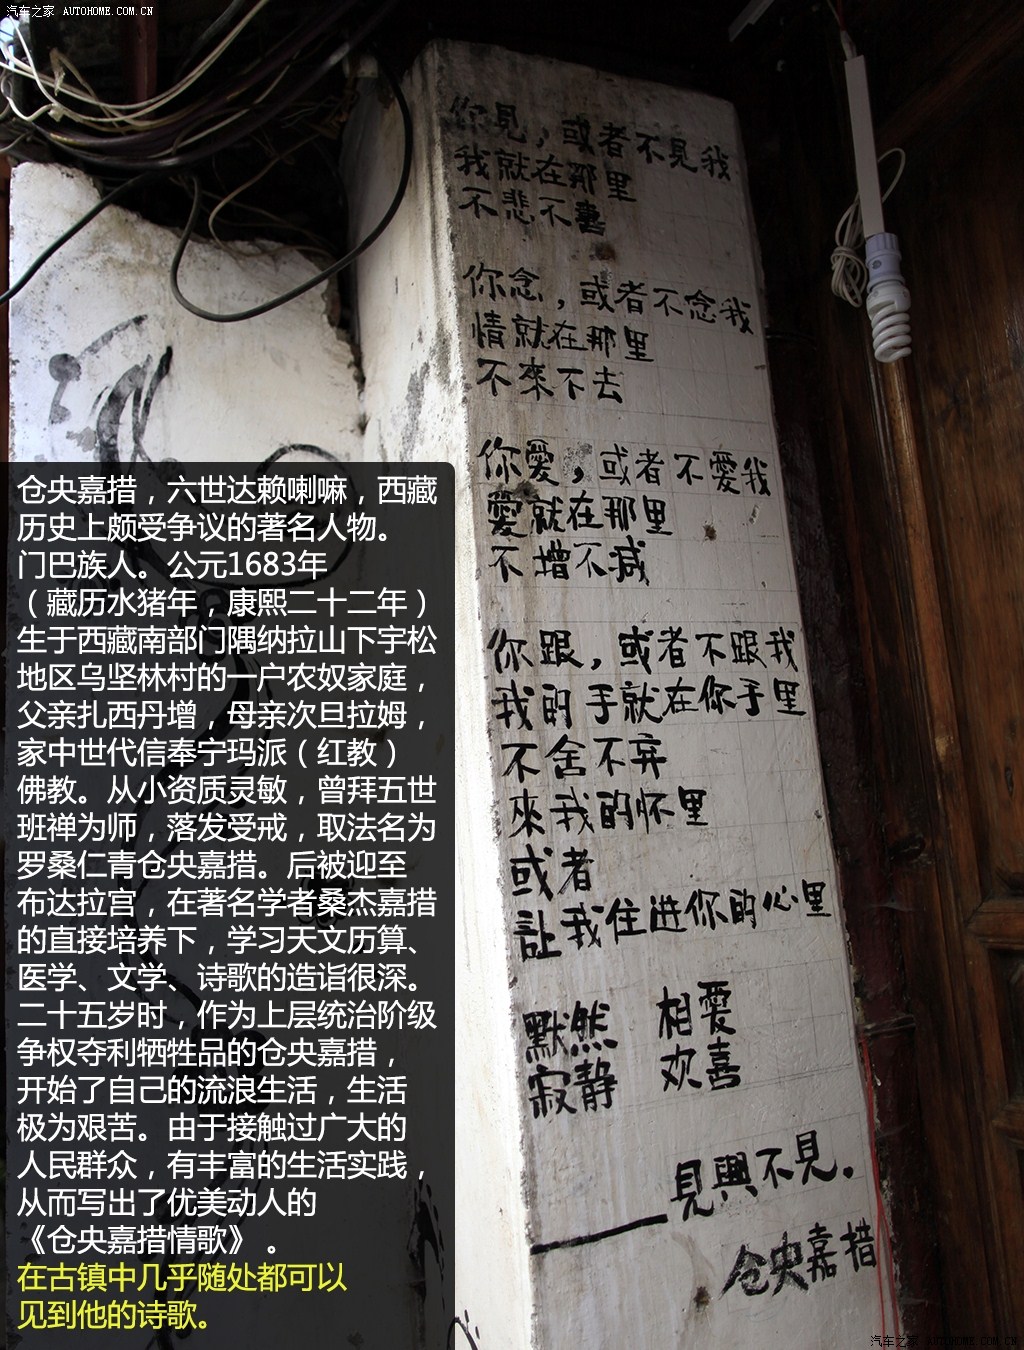 汽车之家 AUTOHOME.COM.CN
你見，或者不見我
我就在那里
不悲不喜
你念，或者不念我
情就在那里
不來不去
你愛，或者不愛我
愛就在那里
不增不减
你跟，或者不跟我
我的手就在你手里
不舍不弃
來我的怀里
或者
訨我住进你的心里
默然 相愛
寂静 欢喜
——見與不見。
仓央嘉措
仓央嘉措，六世达赖喇嘛，西藏
历史上颇受争议的著名人物。
门巴族人。公元1683年
（藏历水猪年，康熙二十二年）
生于西藏南部门隅纳拉山下宇松
地区乌坚林村的一户农奴家庭，
父亲扎西丹增，母亲次旦拉姆，
家中世代信奉宁玛派（红教）
佛教。从小资质灵敏，曾拜五世
班禅为师，落发受戒，取法名为
罗桑仁青仓央嘉措。后被迎至
布达拉宫，在著名学者桑杰嘉措
的直接培养下，学习天文历算、
医学、文学、诗歌的造诣很深。
二十五岁时，作为上层统治阶级
争权夺利牺牲品的仓央嘉措，
开始了自己的流浪生活，生活
极为艰苦。由于接触过广大的
人民群众，有丰富的生活实践，
从而写出了优美动人的
《仓央嘉措情歌》 。
在古镇中几乎随处都可以
见到他的诗歌。
汽车之家 AUTOHOME.COM.CN